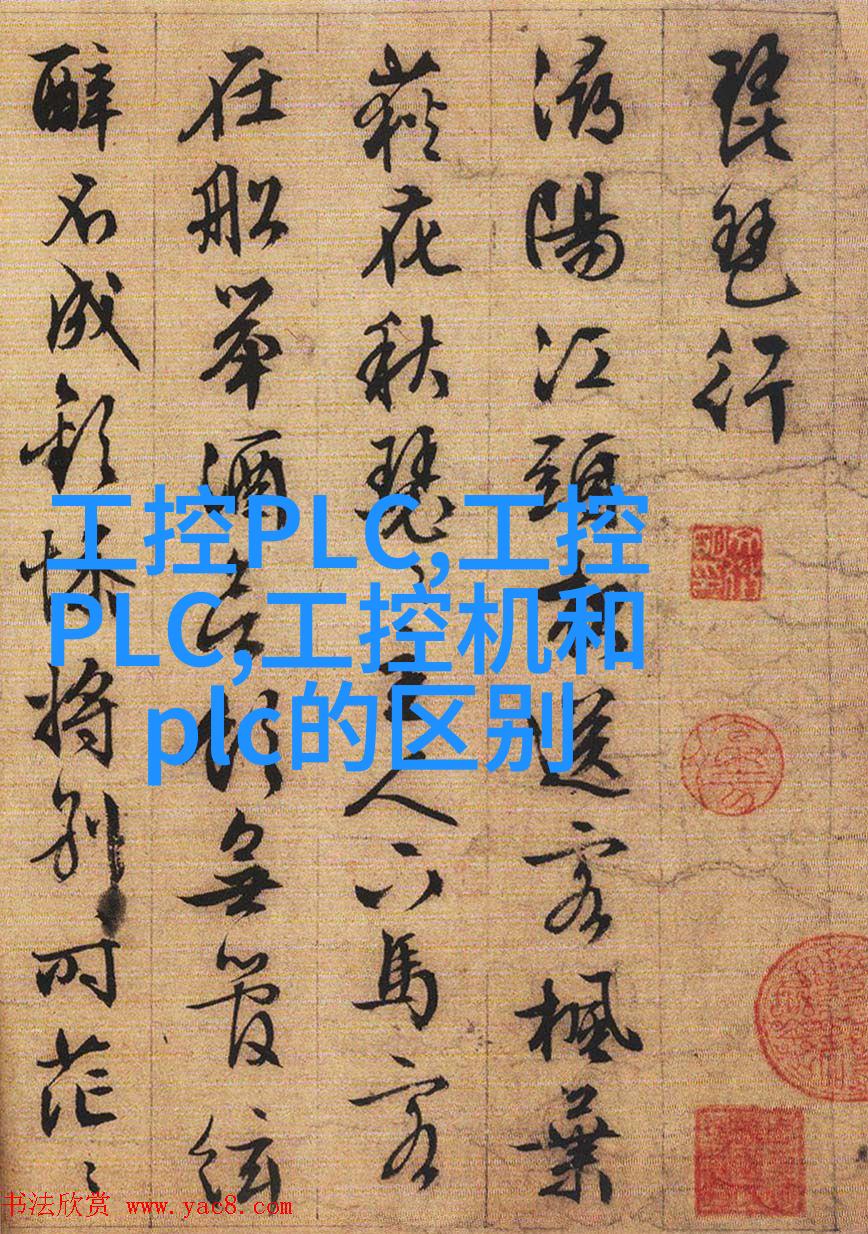 琵琶行
潯陽江頭夜送客楓葉
荻花秋瑟〻主人下馬客
在船舉酒欲飲無管絃
醉不成歡慘將別時茫〻
工控PLC,工控
PLC,工控机和
plc的区别
书法欣赏 www.yac8.com